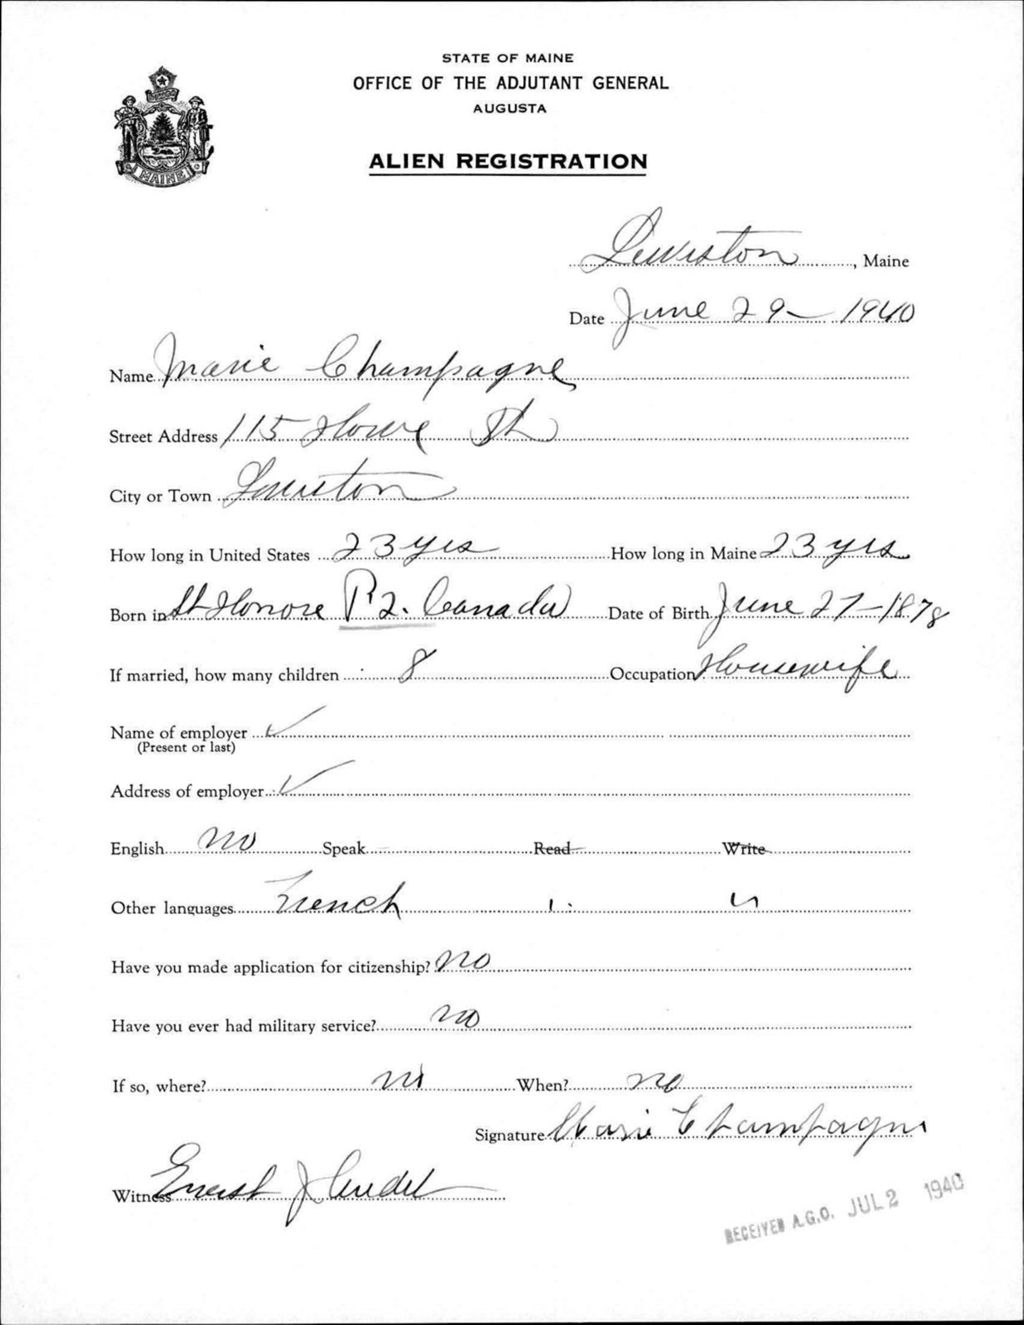 STATE OF MAINE
OFFICE OF THE ADJUTANT GENERAL
AUGUSTA
MAINE
ALIEN REGISTRATION
Lewiston, Maine
Date June 29 - 1940
Name Marie Champagne
Street Address 115 Howe St
City or Town Lewiston
How long in United States 23 yrs How long in Maine 23 yrs
Born in St Honore P2. Canada Date of Birth June 27-1878
If married, how many children 8 Occupation Housewife
Name of employer ✓
(Present or last)
Address of employer ✓
English no Speak Read Write
Other languages French " "
Have you made application for citizenship? no
Have you ever had military service? no
If so, where? no When? no
Signature Marie Champagne
Witness Ernest J
RECEIVED A.G.O. JUL 2 1940